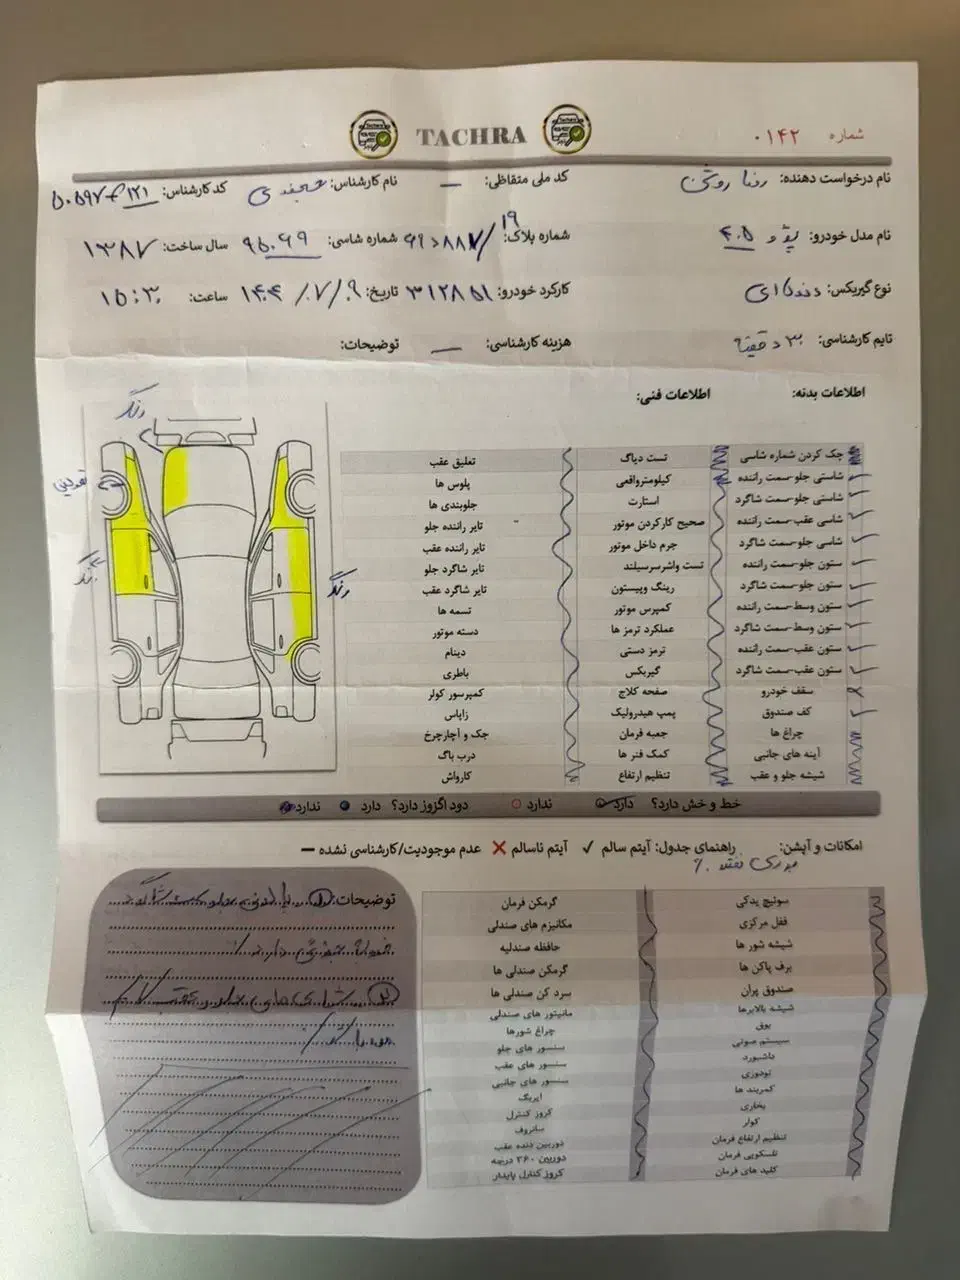 TACHRA
شماره ۰۱۴۲
نام درخواست دهنده: رضا روشن کد ملی متقاظی: — نام کارشناس: کد کارشناس:
نام مدل خودرو: پژو ۴۰۵ شماره پلاک: شماره شاسی: ۹۵۰۶۹ سال ساخت: ۱۳۸۷
نوع گیربکس: دنده‌ای کارکرد خودرو: ۳۱۲۸۵۱ تاریخ: ۱۴۰۴/۰۷/۰۹ ساعت: ۱۵:۳۰
تایم کارشناسی: ۳۰ دقیقه هزینه کارشناسی: — توضیحات:
اطلاعات بدنه: اطلاعات فنی:
رنگ
رنگ
رنگ
چک کردن شماره شاسی تست دیاگ تعلیق عقب
شاسی جلو-سمت راننده کیلومترواقعی پلوس ها
شاسی جلو-سمت شاگرد استارت جلوبندی ها
شاسی عقب-سمت راننده صحیح کارکردن موتور تایر راننده جلو
شاسی جلو-سمت شاگرد جرم داخل موتور تایر راننده عقب
ستون جلو-سمت راننده تست واشرسرسیلند تایر شاگرد جلو
ستون جلو-سمت شاگرد رینگ وپیستون تایر شاگرد عقب
ستون وسط-سمت راننده کمپرس موتور تسمه ها
ستون وسط-سمت شاگرد عملکرد ترمز ها دسته موتور
ستون عقب-سمت راننده ترمز دستی دینام
ستون عقب-سمت شاگرد گیربکس باطری
سقف خودرو صفحه کلاج کمپرسور کولر
کف صندوق پمپ هیدرولیک زاپاس
چراغ ها جعبه فرمان جک و آچارچرخ
آینه های جانبی کمک فنر ها درب باگ
شیشه جلو و عقب تنظیم ارتفاع کارواش
خط و خش دارد؟ دارد ندارد دود اگزوز دارد؟ دارد ندارد
امکانات و آپشن: راهنمای جدول: آیتم سالم ✓ آیتم ناسالم ✗ عدم موجودیت/کارشناسی نشده —
سوئیچ یدکی گرمکن فرمان
قفل مرکزی مکانیزم های صندلی
شیشه شور ها حافظه صندلیه
برف پاکن ها گرمکن صندلی ها
صندوق پران سرد کن صندلی ها
شیشه بالابرها مانیتور های صندلی
بوق چراغ شورها
سیستم صوتی سنسور های جلو
داشبورد سنسور های عقب
تودوزی سنسور های جانبی
کمربند ها ایربگ
بخاری کروز کنترل
کولر سانروف
تنظیم ارتفاع فرمان دوربین دنده عقب
تلسکوپی فرمان دوربین ۳۶۰ درجه
کلید های فرمان کروز کنترل پایدار
توضیحات: